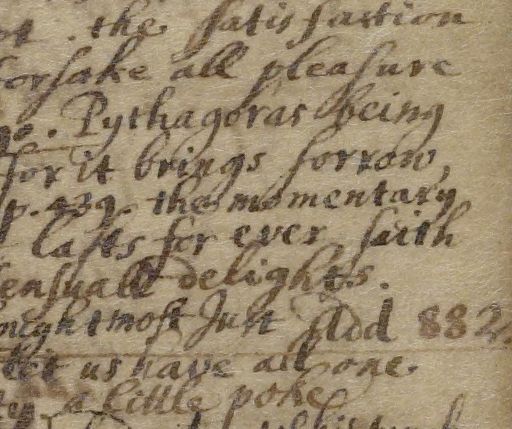 the satisfaction
forsake all pleasure
ge. Pythagoras being
for it brings sorrow,
p. 439. the momentary
lasts for ever, saith
sensuall delights.
might most Just Add 882.
let us have all one.
a little poke